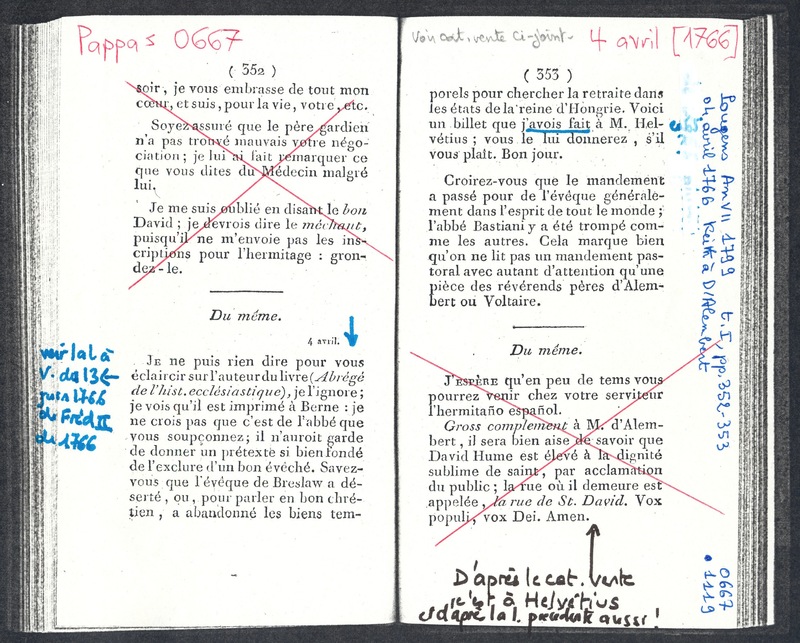 Pappas 0667
( 352 )
soir, je vous embrasse de tout mon
cœur, et suis, pour la vie, votre, etc.
Soyez assuré que le père gardien
n'a pas trouvé mauvais votre négo-
ciation ; je lui ai fait remarquer ce
que vous dites du Médecin malgré
lui.
Je me suis oublié en disant le bon
David ; je devrois dire le méchant,
puisqu'il ne m'envoie pas les ins-
criptions pour l'hermitage : gron-
dez-le.
Du même.
4 avril.
JE ne puis rien dire pour vous
éclaircir sur l'auteur du livre (Abrégé
de l'hist. ecclésiastique), je l'ignore ;
je vois qu'il est imprimé à Berne : je
ne crois pas que c'est de l'abbé que
vous soupçonnez ; il n'auroit garde
de donner un prétexte si bien fondé
de l'exclure d'un bon évêché. Savez-
vous que l'évêque de Breslaw a dé-
serté, ou, pour parler en bon chré-
tien, a abandonné les biens tem-
voir la l. à
V. du 13
juin 1766
de Fréd II
de 1766
Voir cat. vente ci-joint.
4 avril [1766]
( 353 )
porels pour chercher la retraite dans
les états de la reine d'Hongrie. Voici
un billet que j'avois fait à M. Hel-
vétius ; vous le lui donnerez, s'il
vous plaît. Bon jour.
Croirez-vous que le mandement
a passé pour de l'évêque générale-
ment dans l'esprit de tout le monde ;
l'abbé Bastiani y a été trompé com-
me les autres. Cela marque bien
qu'on ne lit pas un mandement pas-
toral avec autant d'attention qu'une
pièce des révérends pères d'Alem-
bert ou Voltaire.
Du même.
J'ESPÈRE qu'en peu de tems vous
pourrez venir chez votre serviteur
l'hermitaño español.
Gross complement à M. d'Alem-
bert, il sera bien aise de savoir que
David Hume est élevé à la dignité
sublime de saint, par acclamation
du public ; la rue où il demeure est
appelée, la rue de St. David. Vox
populi, vox Dei. Amen.
D'après le cat. vente
c'est à Helvétius
et d'après la l. précédente aussi !
Pougens An VII 1799 t. I, pp. 352-353
04 avril 1766 Keith à D'Alembert
0667
• 1119